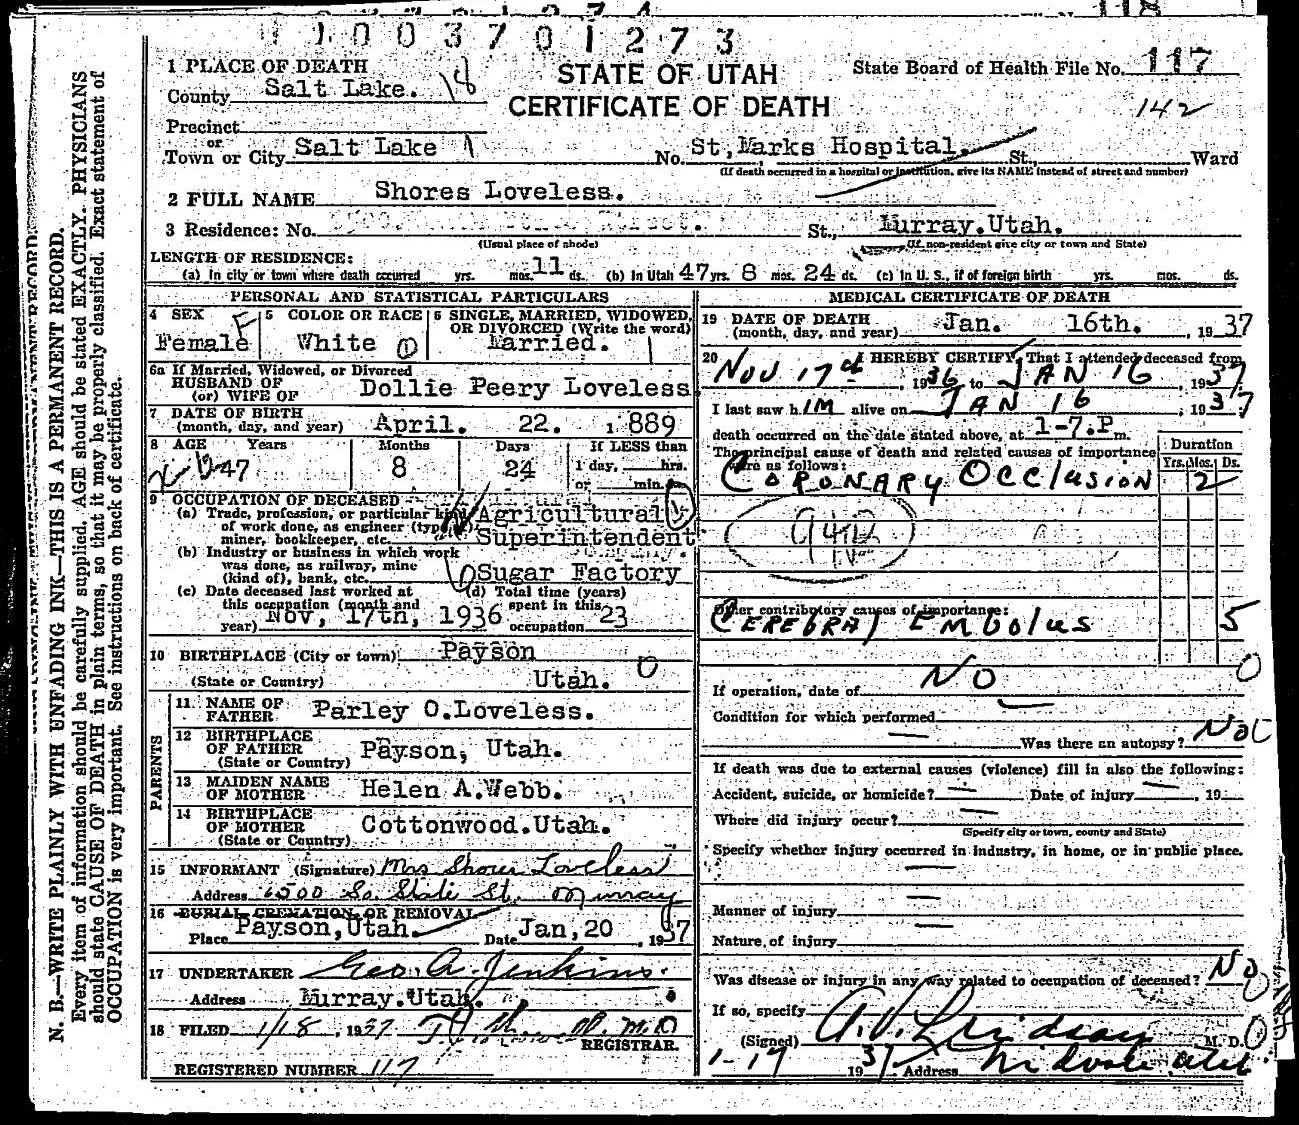 1003701273
1 PLACE OF DEATH
STATE OF UTAH
State Board of Health File No. 117
County Salt Lake. 18
CERTIFICATE OF DEATH
142
Precinct
or
Town or City Salt Lake 1 No. St, Marks Hospital. St., Ward
(If death occurred in a hospital or institution, give its NAME instead of street and number)
2 FULL NAME Shores Loveless.
3 Residence: No. St., Murray.Utah.
(Usual place of abode) (If non-resident give city or town and State)
LENGTH OF RESIDENCE:
(a) In city or town where death occurred yrs. mos. 11 ds. (b) In Utah 47 yrs. 8 mos. 24 ds. (c) In U. S., if of foreign birth yrs. mos. ds.
PERSONAL AND STATISTICAL PARTICULARS
4 SEX
Female F
5 COLOR OR RACE
White
6 SINGLE, MARRIED, WIDOWED,
OR DIVORCED (Write the word)
Married.
6a If Married, Widowed, or Divorced
HUSBAND OF
(or) WIFE OF Dollie Peery Loveless
7 DATE OF BIRTH
(month, day, and year) April. 22. 1889
8 AGE Years Months Days If LESS than
47 8 24 1 day, hrs.
or min.
9 OCCUPATION OF DECEASED
(a) Trade, profession, or particular kind Agricultural
of work done, as engineer (type)
miner, bookkeeper, etc. Superintendent
(b) Industry or business in which work
was done, as railway, mine
(kind of), bank, etc. Sugar Factory
(c) Date deceased last worked at (d) Total time (years)
this occupation (month and spent in this
year) Nov, 17th, 1936 occupation 23
10 BIRTHPLACE (City or town) Payson
(State or Country) Utah. 0
PARENTS
11. NAME OF
FATHER Parley O.Loveless.
12 BIRTHPLACE
OF FATHER Payson, Utah.
(State or Country)
13 MAIDEN NAME
OF MOTHER Helen A.Webb.
14 BIRTHPLACE
OF MOTHER Cottonwood.Utah.
(State or Country)
15 INFORMANT (Signature) Mrs Shores Loveless
Address 6500 So. State St. Murray
16 BURIAL, CREMATION, OR REMOVAL
Place Payson,Utah. Date Jan,20, 1937
17 UNDERTAKER Geo. A. Jenkins.
Address Murray.Utah.
18 FILED 1/18, 1937 M.D
REGISTRAR.
REGISTERED NUMBER 117
MEDICAL CERTIFICATE OF DEATH
19 DATE OF DEATH
(month, day, and year) Jan. 16th. , 1937
20 I HEREBY CERTIFY, That I attended deceased from
Nov 17th, 1936 to JAN 16, 1937
I last saw h IM alive on JAN 16, 1937
death occurred on the date stated above, at 1-7.P m.
The principal cause of death and related causes of importance
were as follows:
Duration
Yrs. Mos. Ds.
CORONARY OCClusION 2
94b
Other contributory causes of importance:
CEREBRAl EMBolus 5
0
If operation, date of NO
Condition for which performed —
Was there an autopsy? No
If death was due to external causes (violence) fill in also the following:
Accident, suicide, or homicide? — Date of injury —, 19
Where did injury occur? —
(Specify city or town, county and State)
Specify whether injury occurred in Industry, in home, or in public place.
—
Manner of injury —
Nature of injury —
Was disease or injury in any way related to occupation of deceased? No
If so, specify
(Signed) A.V. Lindsay M. D.
1-17 1937 Address Midvale Utah
N. B.—WRITE PLAINLY WITH UNFADING INK—THIS IS A PERMANENT RECORD.
Every item of information should be carefully supplied. AGE should be stated EXACTLY. PHYSICIANS
should state CAUSE OF DEATH in plain terms, so that it may be properly classified. Exact statement of
OCCUPATION is very important. See instructions on back of certificate.